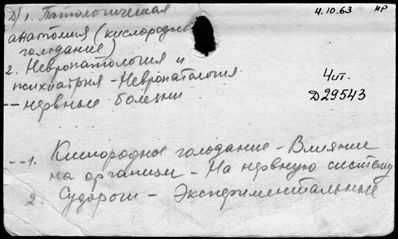 Д) 1. Патологическая
4.10.63 НР
анатомия (кислородное
голодание)
2. Невропатология и
психиатрия - Невропатология
-- нервные болезни
Чит.
Д29543
--1. Кислородное голодание - Влияние
на организм - На нервную систему
2. Судороги - Экспериментальные